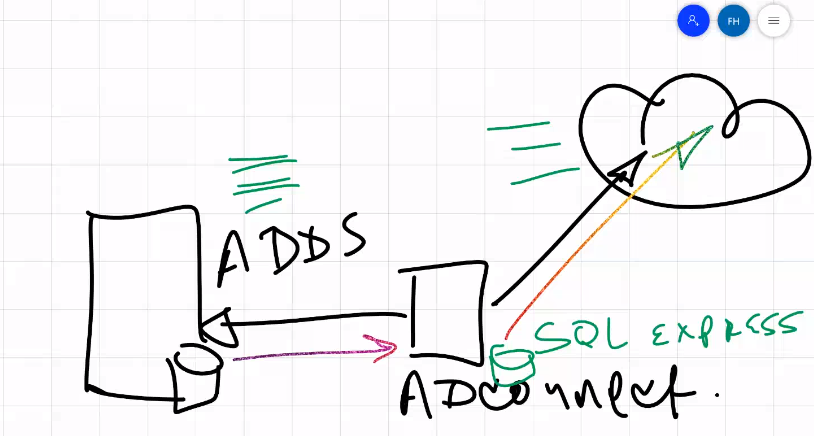 FH
ADDS
SQL EXPRESS
ADconnect.